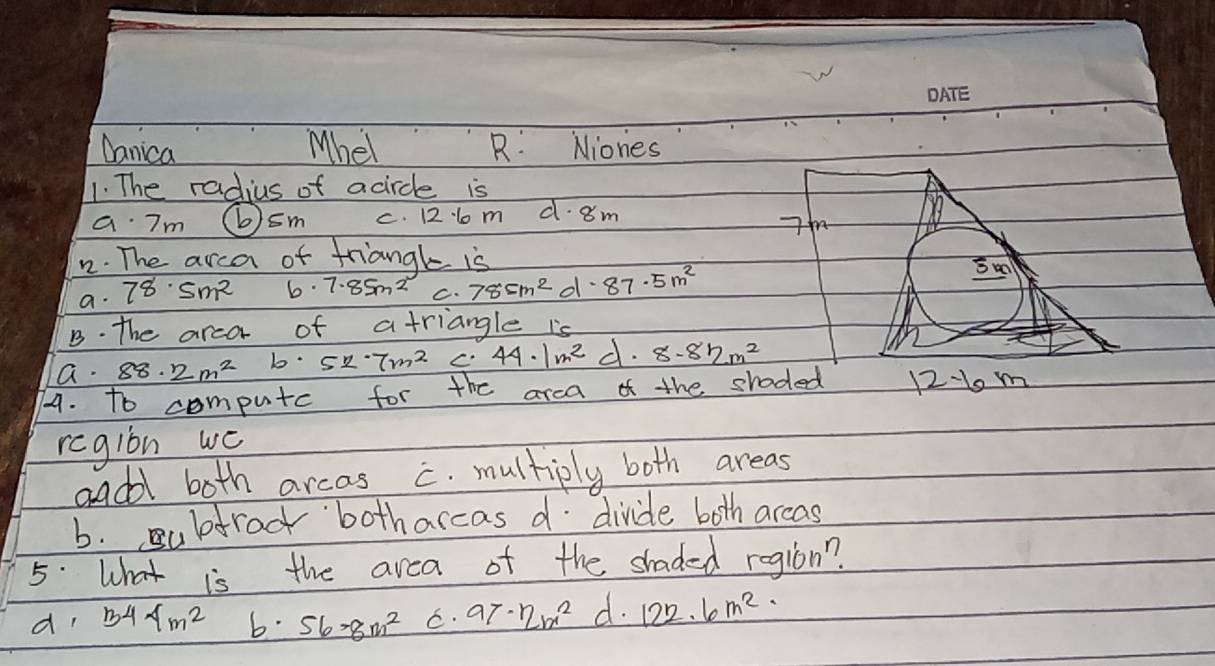 DATE
Danica Mhel R. Niones
1. The radius of a circle is
a. 7m b) 5m c. 12.6 m d. 8m
2. The area of triangle is
a. 78.5m² b. 7.85m² c. 785m² d. 87.5m²
3. The area of a triangle is
a. 88.2m² b. 52.7m² c. 44.1m² d. 8.82m²
4. To compute for the area of the shaded
region we
a add both areas c. multiply both areas
b. subtract both areas d. divide both areas
5. What is the area of the shaded region?
a. 34.4m² b. 56.8m² c. 97.2m² d. 122.6m².
7m
5m
12.6 m